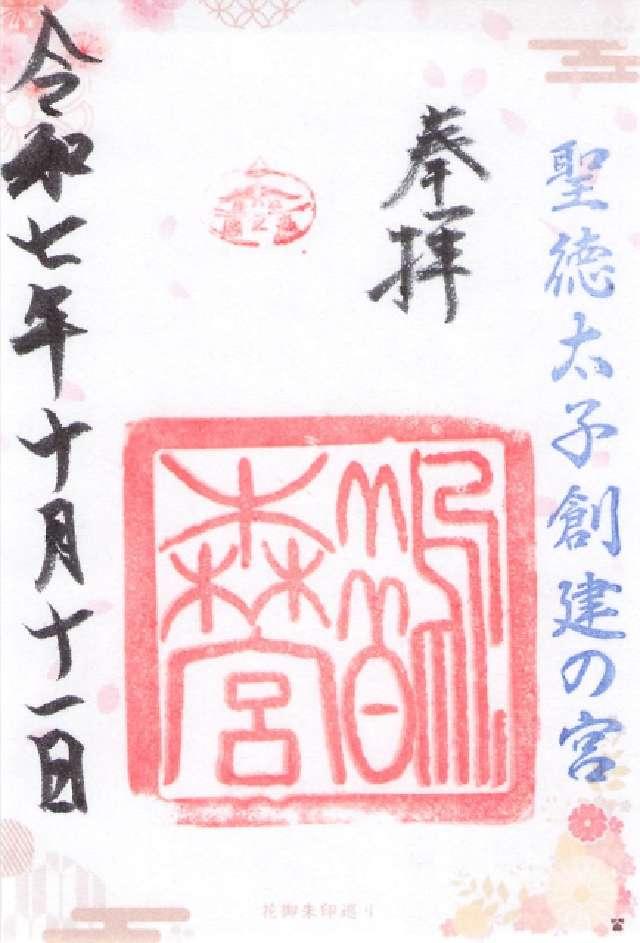 聖徳太子創建の宮
奉拝
鵲森宮
令和七年十月十一日
花御朱印巡り